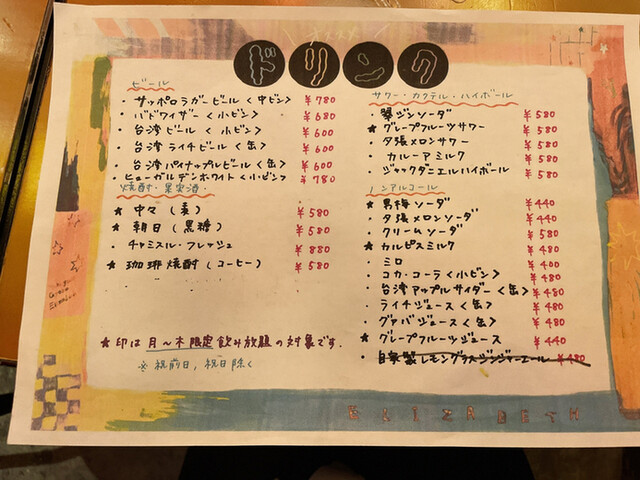 ドリンク
ビール
・サッポロラガービール〈中ビン〉 ¥780
・バドワイザー〈小ビン〉 ¥680
・台湾ビール〈小ビン〉 ¥600
・台湾ライチビール〈缶〉 ¥600
・台湾パイナップルビール〈缶〉 ¥600
・ヒューガルデンホワイト〈小ビン〉 ¥780
焼酎・果実酒・
★ 中々(麦) ¥580
★ 朝日(黒糖) ¥580
・チャミスル・フレッシュ ¥880
★ 珈琲焼酎(コーヒー) ¥580
★印は月〜木限定飲み放題の対象です.
※祝前日,祝日除く
サワー・カクテル・ハイボール
・翠ジンソーダ ¥580
★グレープフルーツサワー ¥580
・夕張メロンサワー ¥580
・カルーアミルク ¥580
・ジャックダニエルハイボール ¥580
ノンアルコール
★男梅ソーダ ¥440
・夕張メロンソーダ ¥440
・クリームソーダ ¥580
★カルピスミルク ¥480
・ミロ ¥400
・コカ・コーラ〈小ビン〉 ¥480
・台湾アップルサイダー〈缶〉 ¥480
・ライチジュース〈缶〉 ¥480
・グァバジュース〈缶〉 ¥480
★グレープフルーツジュース ¥440
・自家製レモングラスジンジャーエール ¥480
ELIZABETH